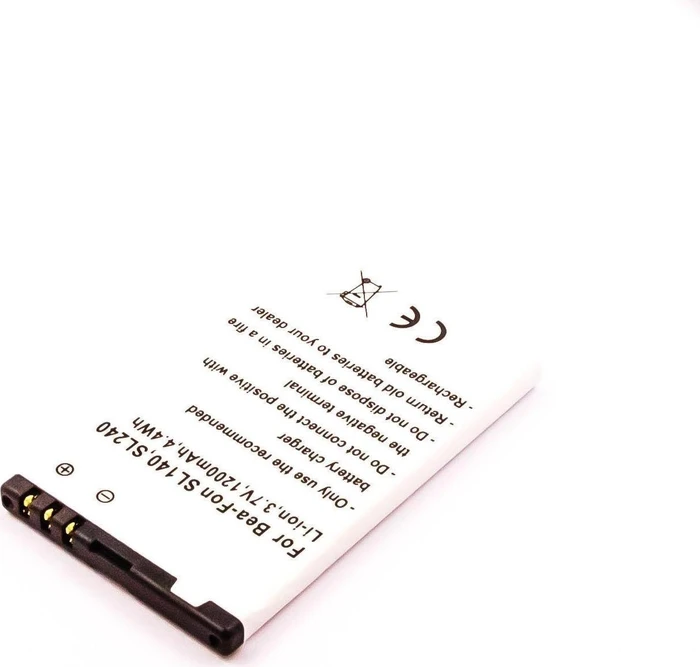 For Bea-Fon SL140,SL240
Li-ion,3.7V,1200mAh,4.4Wh
-Only use the recommended
battery charger
-Do not connect the positive with
the negative terminal
-Do not dispose of batteries in a fire
-Return old batteries to your dealer
-Rechargeable
CE
+ -